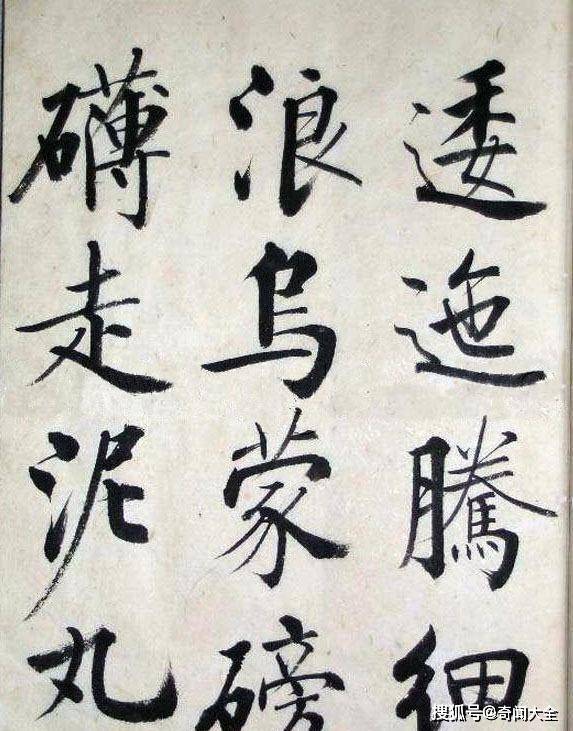 逶迤騰细
浪烏蒙磅
礴走泥丸
搜狐号@奇闻大全